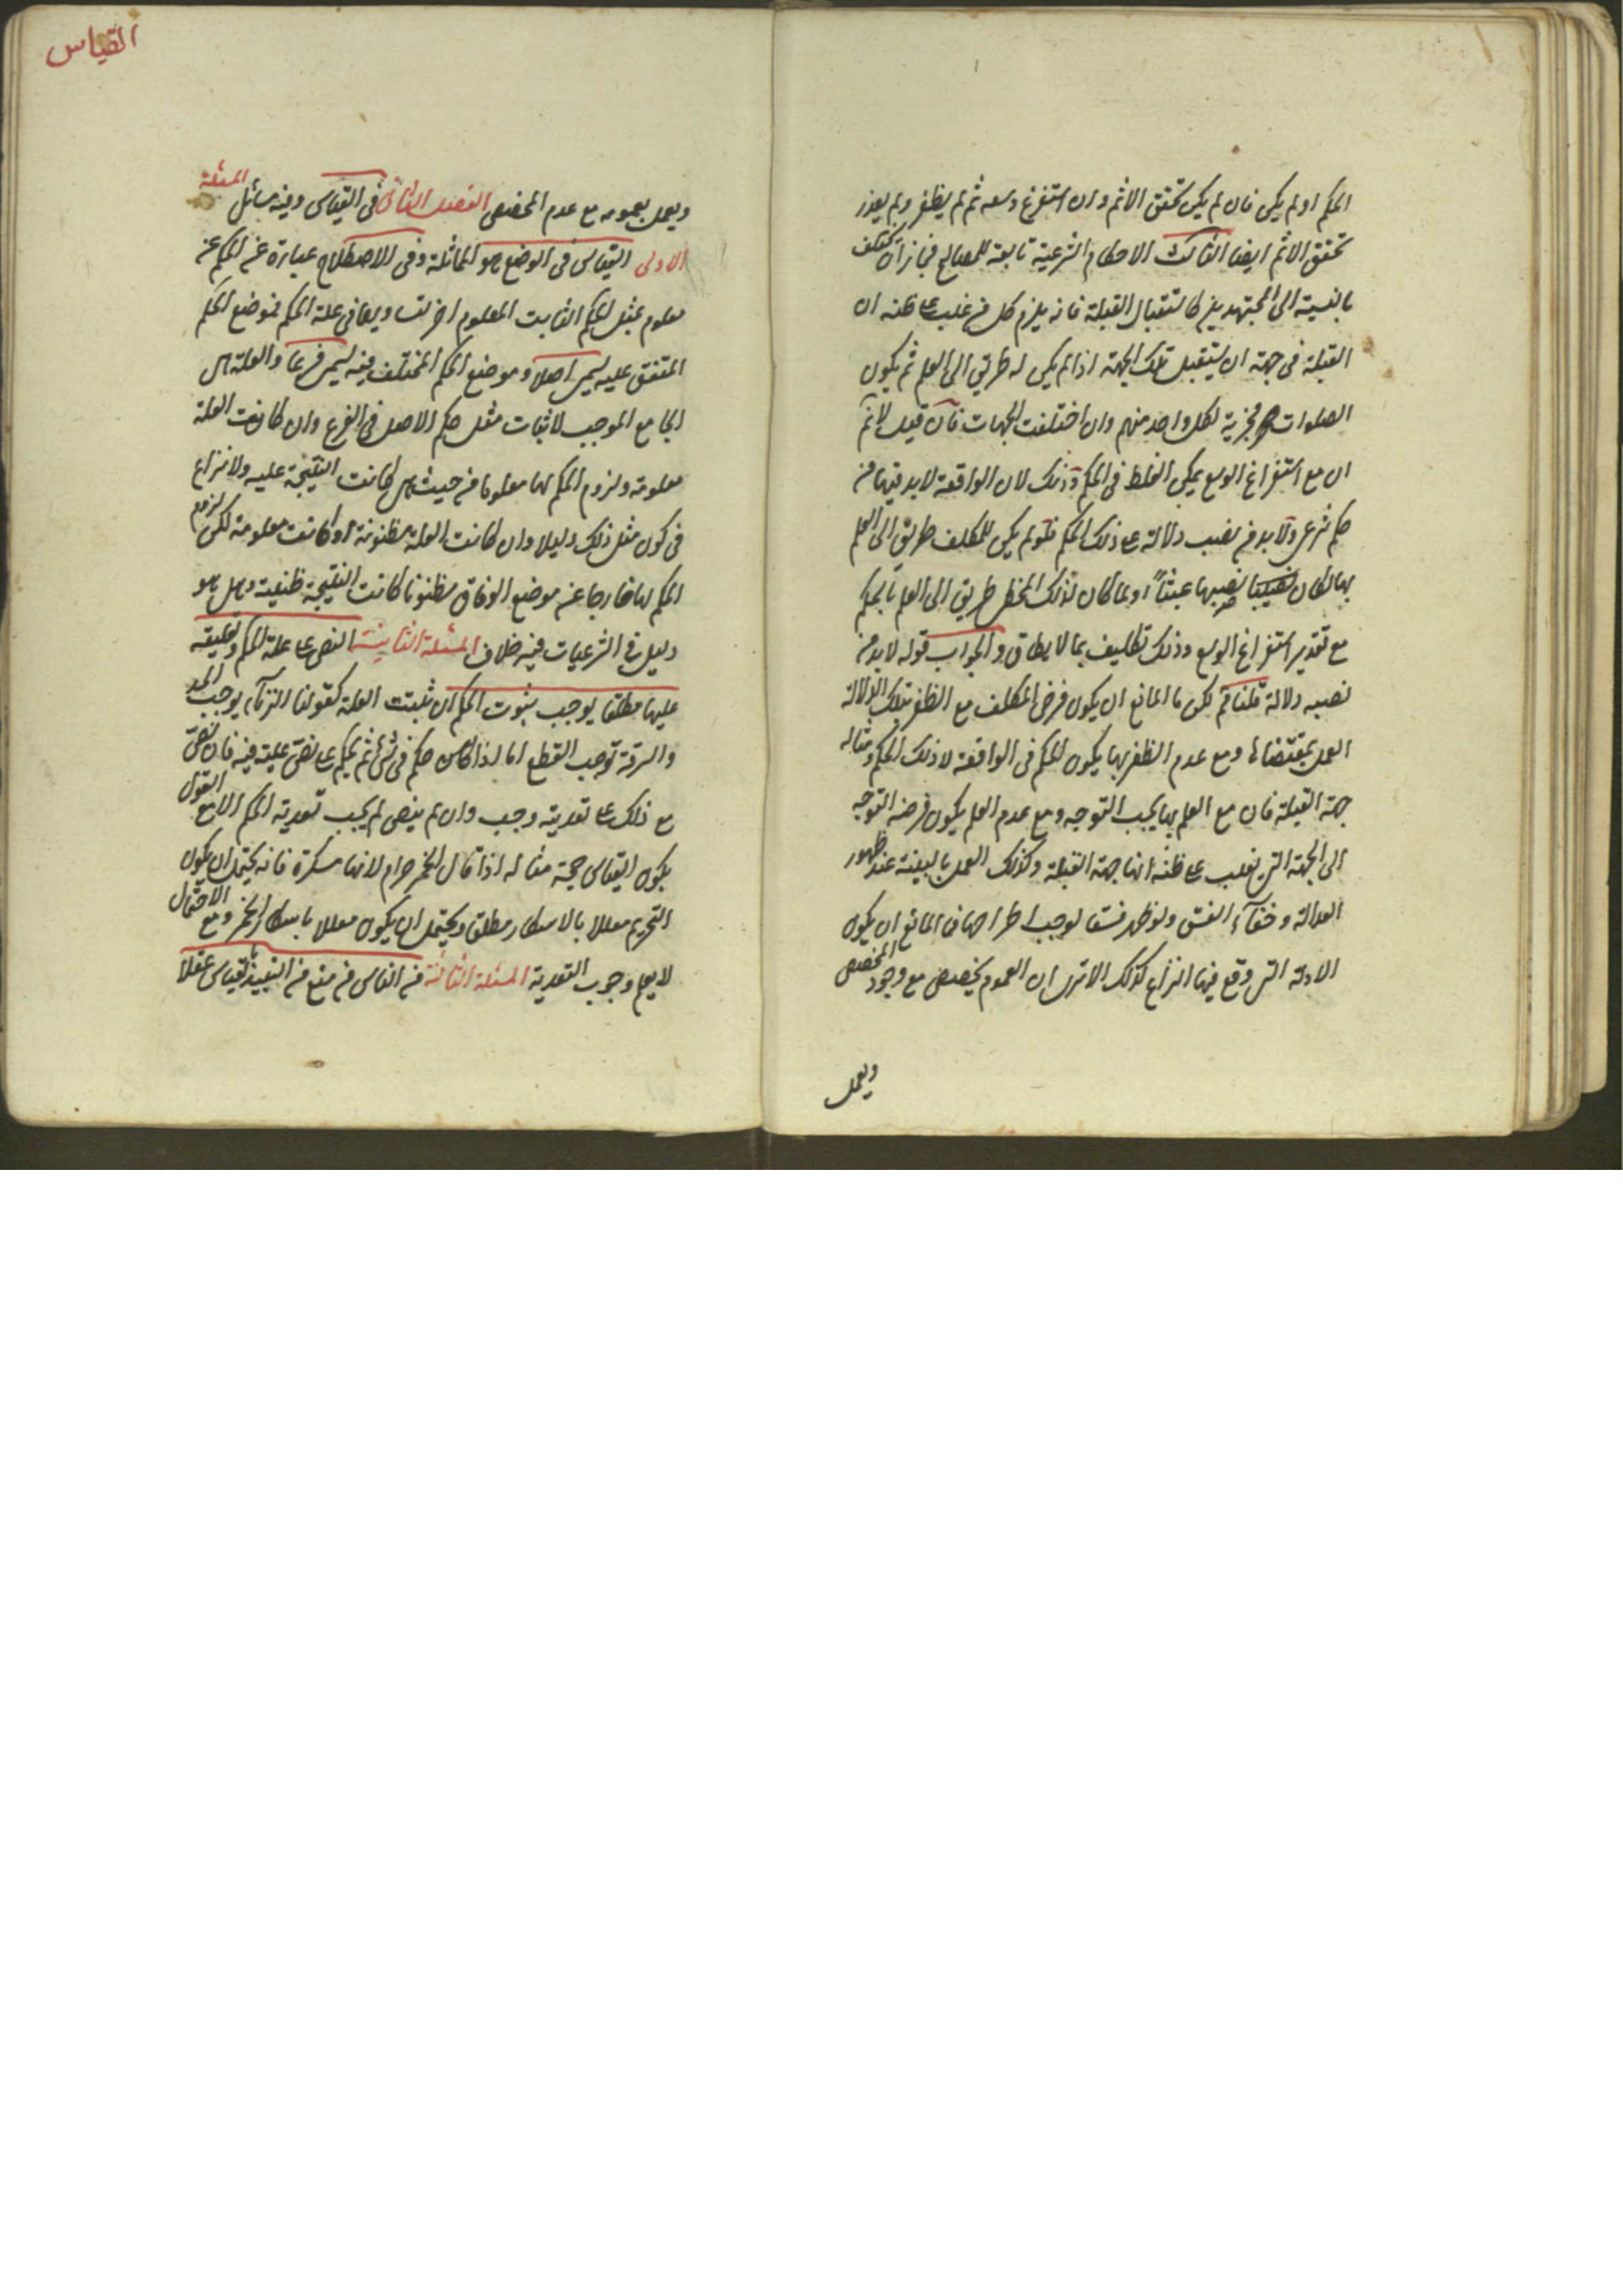 الحكم او لم يكن فان لم يكن تحقق الاثم وان استفرغ وسعه ثم لم يظفر ولم يعذر
تحقق الاثم ايضا الثالث الاحكام الشرعية تابعة للمصالح فجاز ان تختلف
بالنسبة الى المجتهدين كاستقبال القبلة فانه يلزم كل من غلب على ظنه ان
القبلة فى جهة ان يستقبل تلك الجهة اذا لم يكن له طريق الى العلم ثم يكون
الصلوات مجزية لكل واحد منهم وان اختلفت الجهات فان قيل لا نم
ان مع استفراغ الوسع يمكن الغلط فى الحكم وذلك لان الواقعة لابد فيها من
حكم شرعى ولابد من نصب دلالة على ذلك الحكم فلو لم يكن للمكلف طريق الى العلم
بها لكان نصبها عبثاً ولما كان لذلك المخطى طريق الى العلم بالحكم
مع تقدير استفراغ الوسع وذلك تكليف بما لا يطاق والجواب قوله لابد من
نصبه دلالة قلنا نم لكن ما المانع ان يكون فرض المكلف مع الظفر بتلك الدلالة
العمل بمقتضاها ومع عدم الظفر بها يكون الحكم فى الواقعة لا ذلك الحكم ومثاله
جهة القبلة فان مع العلم بها يجب التوجه ومع عدم العلم يكون فرضه التوجه
الى الجهة التى يغلب على ظنه انها جهة القبلة وكذلك العمل بالبينة عند ظهور
العدالة وخفآء الفسق ولو ظهر فسقا لوجب اطراحها فما المانع ان يكون
الادلة التى وقع فيها النزاع كذلك الا ترى ان العموم يخصص مع وجود المخصص
ويعمل
القياس
ويعمل بعمومه مع عدم المخصص الفصل الثانى فى القياس وفيه مسائل المسئلة
الاولى القياس فى الوضع هو المماثلة وفى الاصطلاح عبارة عن الحكم على
معلوم بمثل الحكم الثابت لمعلوم اخر لتساويهما فى علة الحكم فموضع الحكم
المتفق عليه يسمى اصلا وموضع الحكم المختلف فيه يسمى فرعا والعلة هى
الجامع الموجب لاثبات مثل حكم الاصل فى الفرع وان كانت العلة
معلومة ولزوم الحكم لها معلوما من حيث هى كانت النتيجة علميه ولا نزاع
فى كون مثل ذلك دليلا وان كانت العلة مظنونة او كانت معلومة لكن لزوم
الحكم لها خارجا عن موضع الوفاق مظنونا كانت النتيجة ظنية وهل هو
دليل فى الشرعيات فيه خلاف المسئلة الثانية النص على علة الحكم وتعليقه
عليها مطلقا يوجب ثبوت الحكم ان ثبتت العلة كقولنا الزنآء يوجب الحد
والسرقة توجب القطع اما اذا حكم فى شئ ثم يحكم على نص علية فيه فان نص
مع ذلك على تعديته وجب وان لم ينص لم يجب تعدية الحكم الا مع القول
بكون القياس حجة مثاله اذا قال الخمر حرام لانها مسكرة فانه يحتمل ان يكون
التحريم معللا بالاسكار مطلقا ويحتمل ان يكون معللا باسكار الخمر ومع الاحتمال
لا يعلم وجوب التعدية المسئلة الثالثة من الناس من منع من التعبد بالقياس عقلا